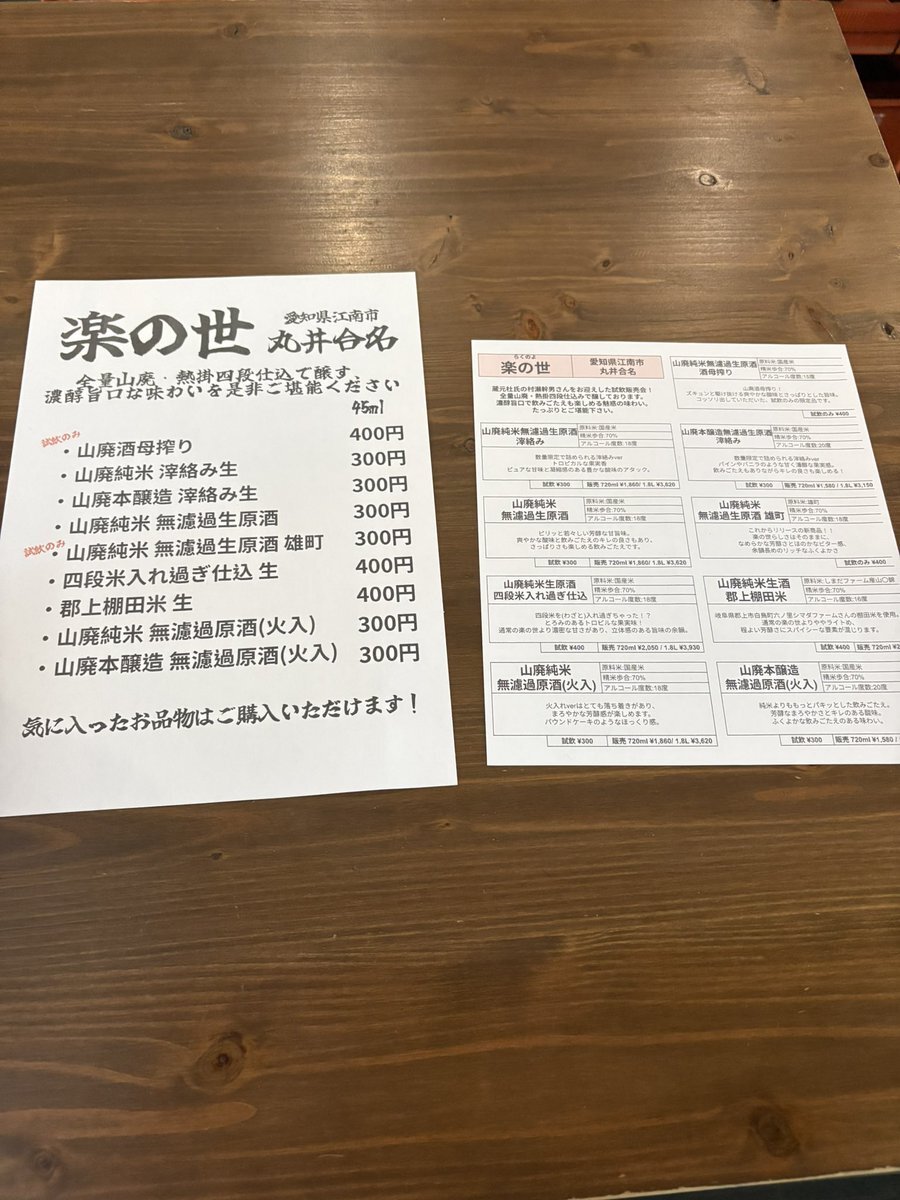 楽の世
愛知県江南市
丸井合名
全量山廃・熱掛四段仕込で醸す、
濃醇旨口な味わいを是非ご堪能ください
45ml
試飲のみ
・山廃酒母搾り 400円
・山廃純米 滓絡み生 300円
・山廃本醸造 滓絡み生 300円
・山廃純米 無濾過生原酒 300円
試飲のみ
・山廃純米 無濾過生原酒 雄町 300円
・四段米入れ過ぎ仕込 生 400円
・郡上棚田米 生 400円
・山廃純米 無濾過原酒(火入) 300円
・山廃本醸造 無濾過原酒(火入) 300円
気に入ったお品物はご購入いただけます！
らくのよ
楽の世
愛知県江南市
丸井合名
蔵元杜氏の村瀬幹男さんをお迎えした試飲販売会！
全量山廃・熱掛四段仕込みで醸しております。
濃醇旨口で飲みごたえも楽しめる魅惑の味わい。
たっぷりとご堪能下さい。
山廃純米無濾過生原酒
酒母搾り
原料米:国産米
精米歩合:70%
アルコール度数:18度
山廃酒母搾り！
ズキュンと駆け抜ける爽やかな酸味とさっぱりとした旨味。
コッソリ出していただいた、試飲のみの限定品です。
試飲のみ ¥400
山廃純米無濾過生原酒
滓絡み
原料米:国産米
精米歩合:70%
アルコール度数:18度
数量限定で詰められる滓絡みver
トロピカルな果実香
ピュアな甘味と凝縮感のある豊かな酸味のアタック。
試飲 ¥300 販売 720ml ¥1,860/ 1.8L ¥3,620
山廃本醸造無濾過生原酒
滓絡み
原料米:国産米
精米歩合:70%
アルコール度数:20度
数量限定で詰められる滓絡みver
パインやバニラのような甘く濃醇な果実感。
飲みごたえもありながらキレの良さも楽しめる！
試飲 ¥300 販売 720ml ¥1,580 / 1.8L ¥3,150
山廃純米
無濾過生原酒
原料米:国産米
精米歩合:70%
アルコール度数:18度
ピリッと若々しい芳醇な甘旨味。
爽やかな酸味と飲みごたえのキレの良さもあり、
さっぱりさも楽しめる飲みごたえです。
試飲 ¥300 販売 720ml ¥1,860/ 1.8L ¥3,620
山廃純米
無濾過生原酒 雄町
原料米:雄町
精米歩合:70%
アルコール度数:18度
これからリリースの新商品！！
楽の世らしさはそのままに、
なめらかな芳醇さとほのかなビター感、
余韻長めのリッチなふくよかさ
試飲のみ ¥400
山廃純米生原酒
四段米入れ過ぎ仕込
原料米:国産米
精米歩合:70%
アルコール度数:18度
四段米を(わざと)入れ過ぎちゃった！？
とろみのあるトロピルな果実味！
通常の楽の世より濃密な甘さがあり、立体感のある旨味の余韻。
試飲 ¥400 販売 720ml ¥2,050 / 1.8L ¥3,930
山廃純米生酒
郡上棚田米
原料米:しまだファーム産山〇錦
精米歩合:70%
アルコール度数:16度
岐阜県郡上市白鳥町六ノ里シマダファームさんの棚田米を使用。
通常の楽の世よりややライトめ、
程よい芳醇さにスパイシーな要素が混じります。
試飲 ¥400 販売 720ml ¥2
山廃純米
無濾過原酒(火入)
原料米:国産米
精米歩合:70%
アルコール度数:18度
火入れverはとても落ち着きがあり、
まろやかな芳醇感が楽しめます。
パウンドケーキのようなほっくり感。
試飲 ¥300 販売 720ml ¥1,860/ 1.8L ¥3,620
山廃本醸造
無濾過原酒(火入)
原料米:国産米
精米歩合:70%
アルコール度数:20度
純米よりももっとパキッとした飲みごたえ。
芳醇なまろやかさとキレのある酸味。
ふくよかな飲みごたえのある味わい。
試飲 ¥300 販売 720ml ¥1,580 /